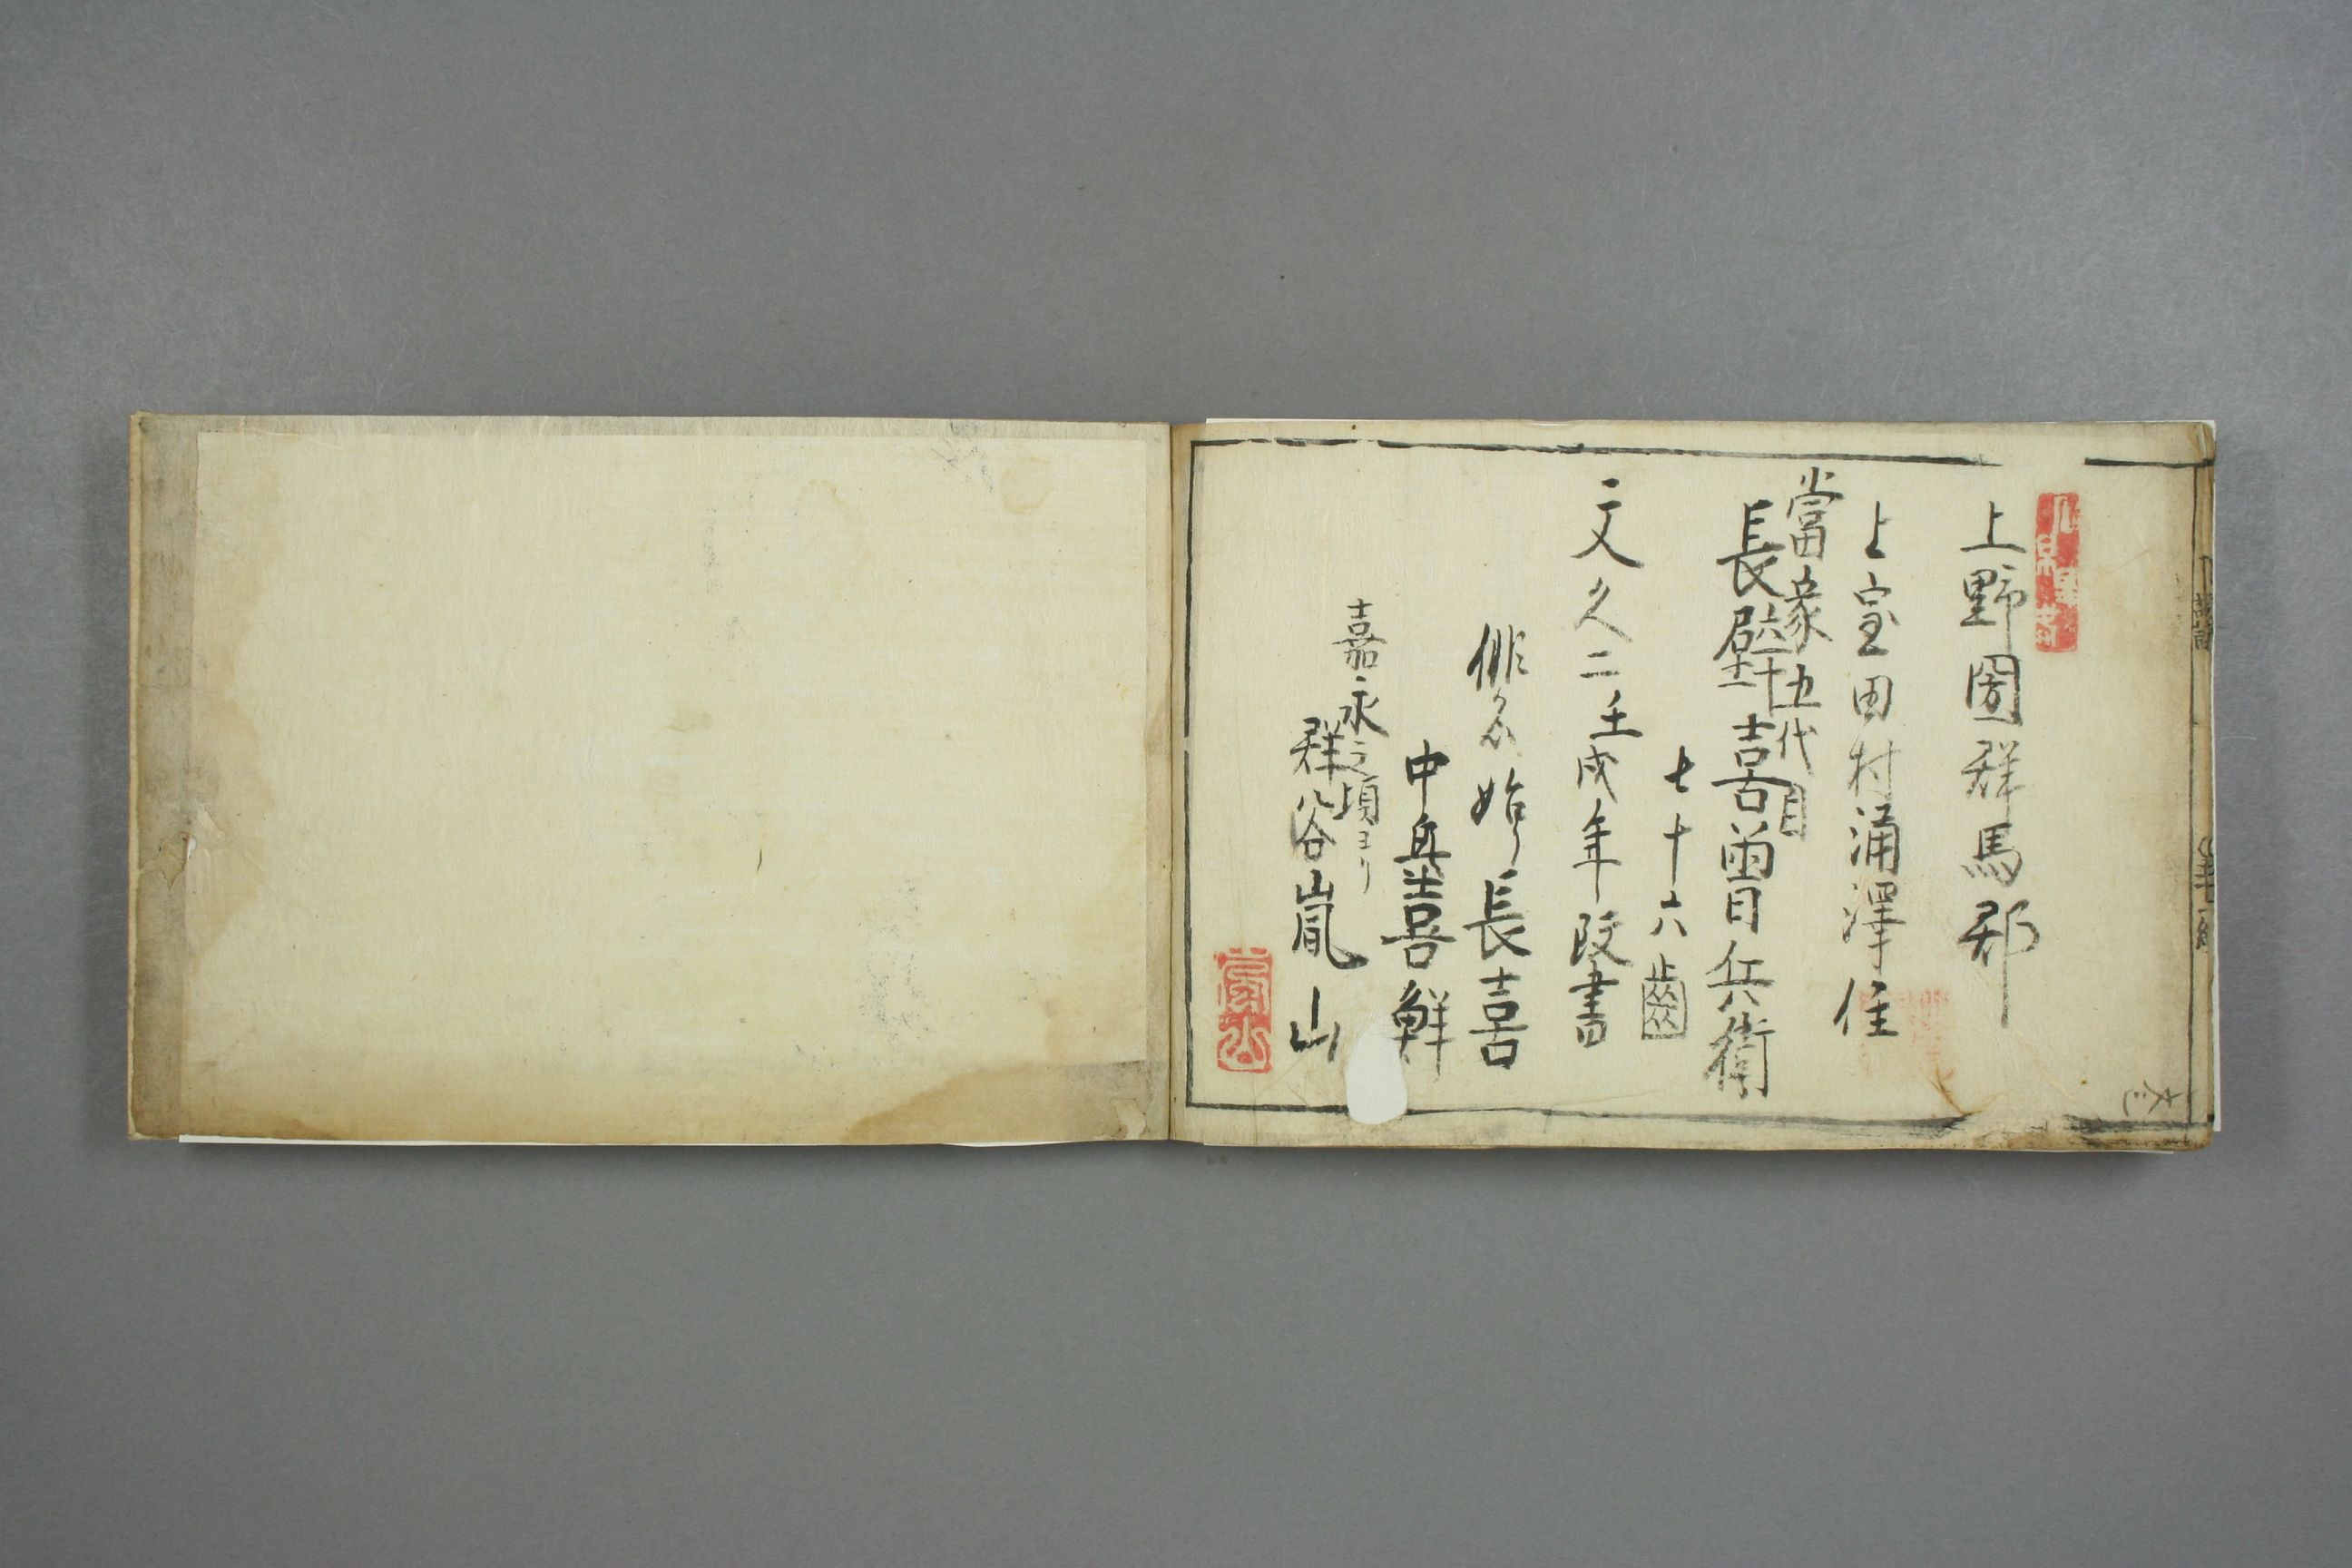 上野圀群馬郡
上室田村涌澤住
當家五代目
長壁六十喜曽目兵衛
七十六齒
文久二壬戌年改書
俳名始メ長喜
中興喜鮮
嘉永之頃ヨリ
群谷嵐山